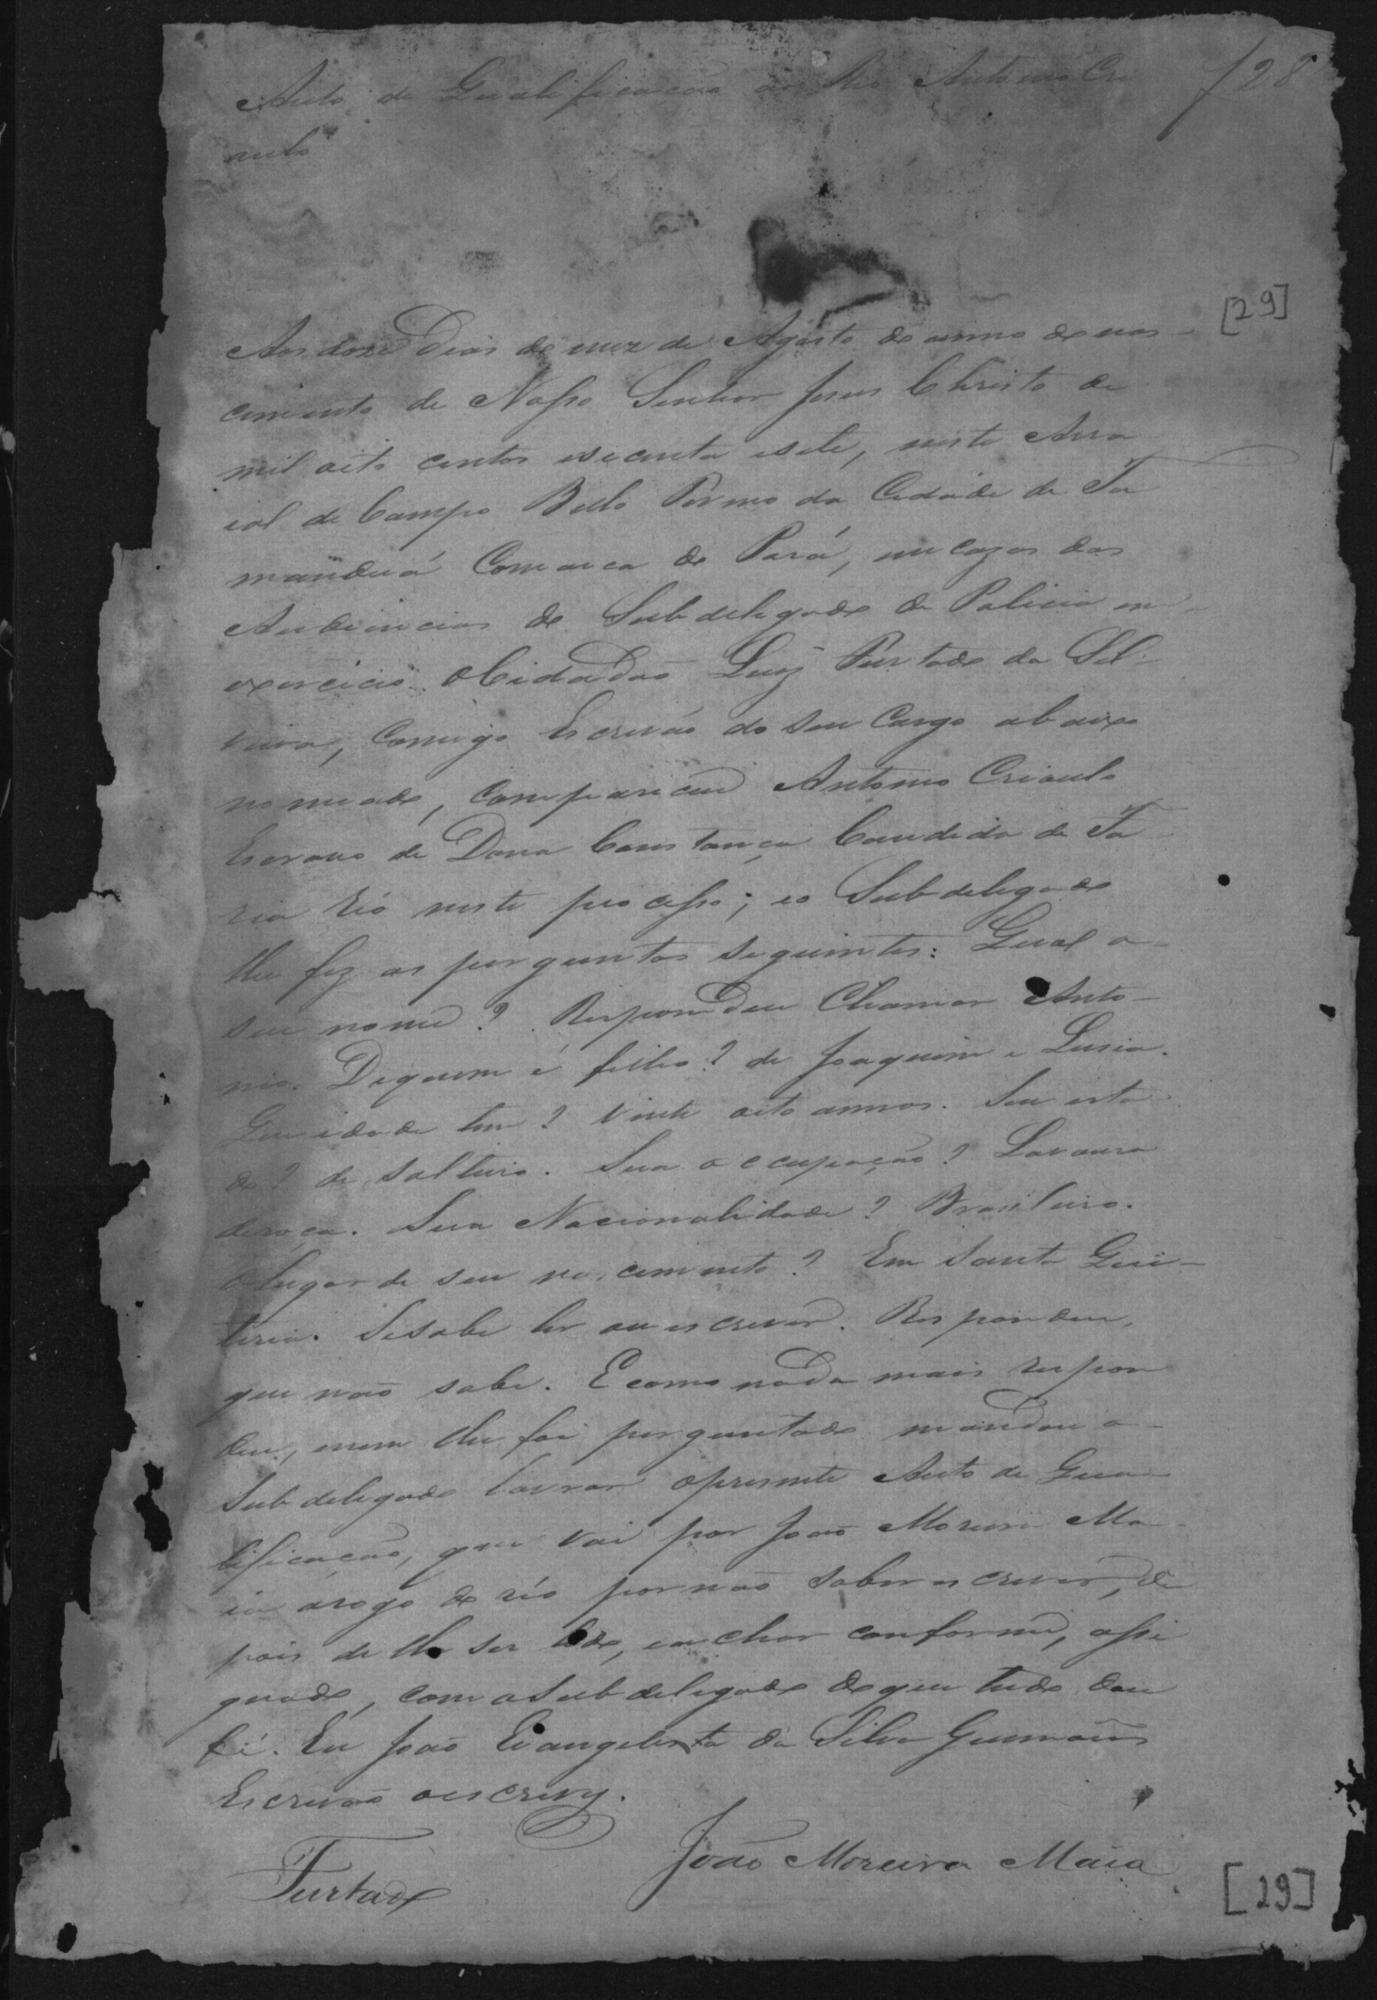 Auto de Qualificação ao Reo Antonio Cri
oulo
/28
[29]
Aos doze Dias do mez de Agosto do anno do nas-
cimento de Nosso Senhor Jesus Christo de
mil oito centos e secenta e sete, neste Arra
ial de Campo Bello Termo da Cidade de Ta
manduá Comarca do Pará, em cazas das
Audiencias do Subdelegado de Policia em
exercicio o Cidadão Luiz Furtado da Sil
veira, Comigo Escrivão do seu Cargo abaixo
nomeado, Compareceu Antonio Crioulo
Escravo de Dona Constança Candida de Fa
ria Réo neste processo; e o Subdelegado
lhe fez as perguntas seguintes: Qual o
seu nome? Respondeu Chamar Anto-
nio. De quem é filho? de Joaquim e Lusia.
Que idade tem? Vinte oito annos. Seu esta
do? de solteiro. Sua occupação? Lavoura
de roça. Sua Nacionalidade? Brasileiro.
O lugar de seu nascimento? Em Santa Qui-
teria. Se sabe ler ou escrever. Respondeu,
que não sabe. E como nada mais respon
deu, e nem lhe foi perguntado mandou o
Subdelegado lavrar o presente Auto de Qua-
lificação, que vai por João Moreira Ma
ia árogo do réo por não saber escrever, de
pois de lhe ser lido, e o achar conforme, assi
gnado, com o Subdelegado do que tudo dou
fé. Eu João Evangelista da Silva Guimarães
Escrivão o escrevy.
Furtado
João Moreira Maia
[29]